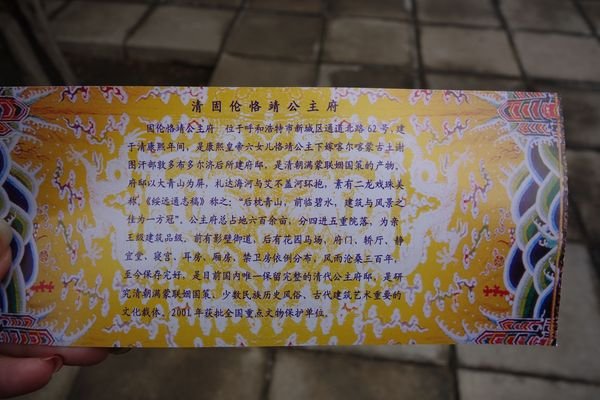 清固伦恪靖公主府
固伦恪靖公主府 位于呼和浩特市新城区通道北路62号，建
于清康熙年间，是康熙皇帝六女儿恪靖公主下嫁喀尔喀蒙古土谢
图汗部敦多布多尔济后所建府邸，是清朝满蒙联姻国策的产物。
府邸以大青山为屏，札达海河与艾不盖河环抱，素有二龙戏珠美
称，《绥远通志稿》称之：“后枕青山，前临碧水，建筑与风景之
佳为一方冠”。公主府总占地六百余亩，分四进五重院落，为亲
王级建筑品级。前有影壁御道，后有花园马场，府门、轿厅、静
宜堂、寝宫、耳房、厢房、禁卫房依例分布，风雨沧桑三百年，
至今保存完好，是目前国内唯一保留完整的清代公主府邸，是研
究清朝满蒙联姻国策、少数民族历史风俗、古代建筑艺术重要的
文化载体。2001年获批全国重点文物保护单位。